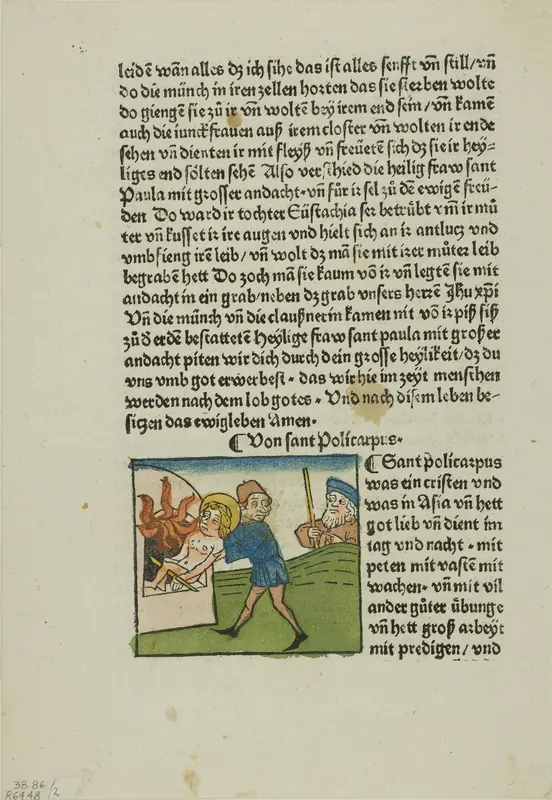 leidē wañ alles dz ich sihe das ist alles senfft vñ still/vñ
do die münch in iren zellen horten das sie sterben wolte
do giengē sie zů ir vñ woltē bey irem end sein/vñ kamē
auch die iunckfrauen auß irem closter vñ wolten ir ende
sehen vñ dienten ir mit fleyß vñ freüetē sich dz sie ir hey-
liges end solten sehē Also verschied die heilig fraw sant
Paula mit grosser andacht·vñ fůr ir sel zů dē ewigē freü-
den Do ward ir tochter Eüstachia ser betrübt vm̄ ir mů
ter vñ kusset ir ire augen vnd hielt sich an ir antlucz vnd
vmbfieng irē leib/vñ wolt dz mā sie mit irer můter leib
begrabē hett Do zoch mā sie kaum vō ir vñ legtē sie mit
andacht in ein grab/neben dz grab vnsers herrē Jhu xp̄i
Vñ die münch vñ die claußnerin kamen nit vō ir piß siß
zů ð erdē bestatteten Heylige fraw sant paula mit grosser
andacht piten wir dich durch dein grosse heylikeit/dz du
vns vmb got erwerbest · das wir hie im zeyt menschen
werden nach dem lob gotes · Vnd nach disem leben be-
siczen das ewigleben Amen·
¶ Von sant Policarpus·
¶ Sant policarpus
was ein cristen vnd
was in Asia vñ hett
got lieb vñ dient im
tag vnd nacht · mit
peten mit vastē mit
wachen· vñ mit vil
ander gůter übunge
vñ hett groß arbeyt
mit predigen/vnd
38.86/2
R6448